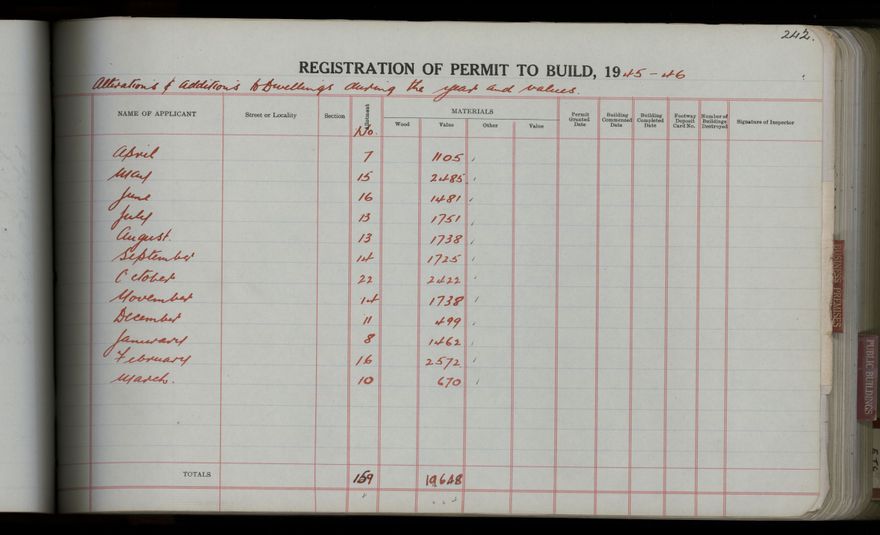 242.
REGISTRATION OF PERMIT TO BUILD, 1945-46
Alterations & additions to Dwellings during the year and values.
NAME OF APPLICANT Street or Locality Section Allotment No. MATERIALS Wood Value Other Value Permit Granted Date Building Commenced Date Building Completed Date Footway Deposit Card No. Number of Buildings Destroyed Signature of Inspector
April 7 1105
May 15 2485
June 16 1481
July 13 1751
August. 13 1738
September 14 1725
October 22 2422
November 14 1738
December 11 499
January 8 1462
February 16 2572
March. 10 670
TOTALS 159 19648
BUSINESS PREMISES
PUBLIC BUILDINGS